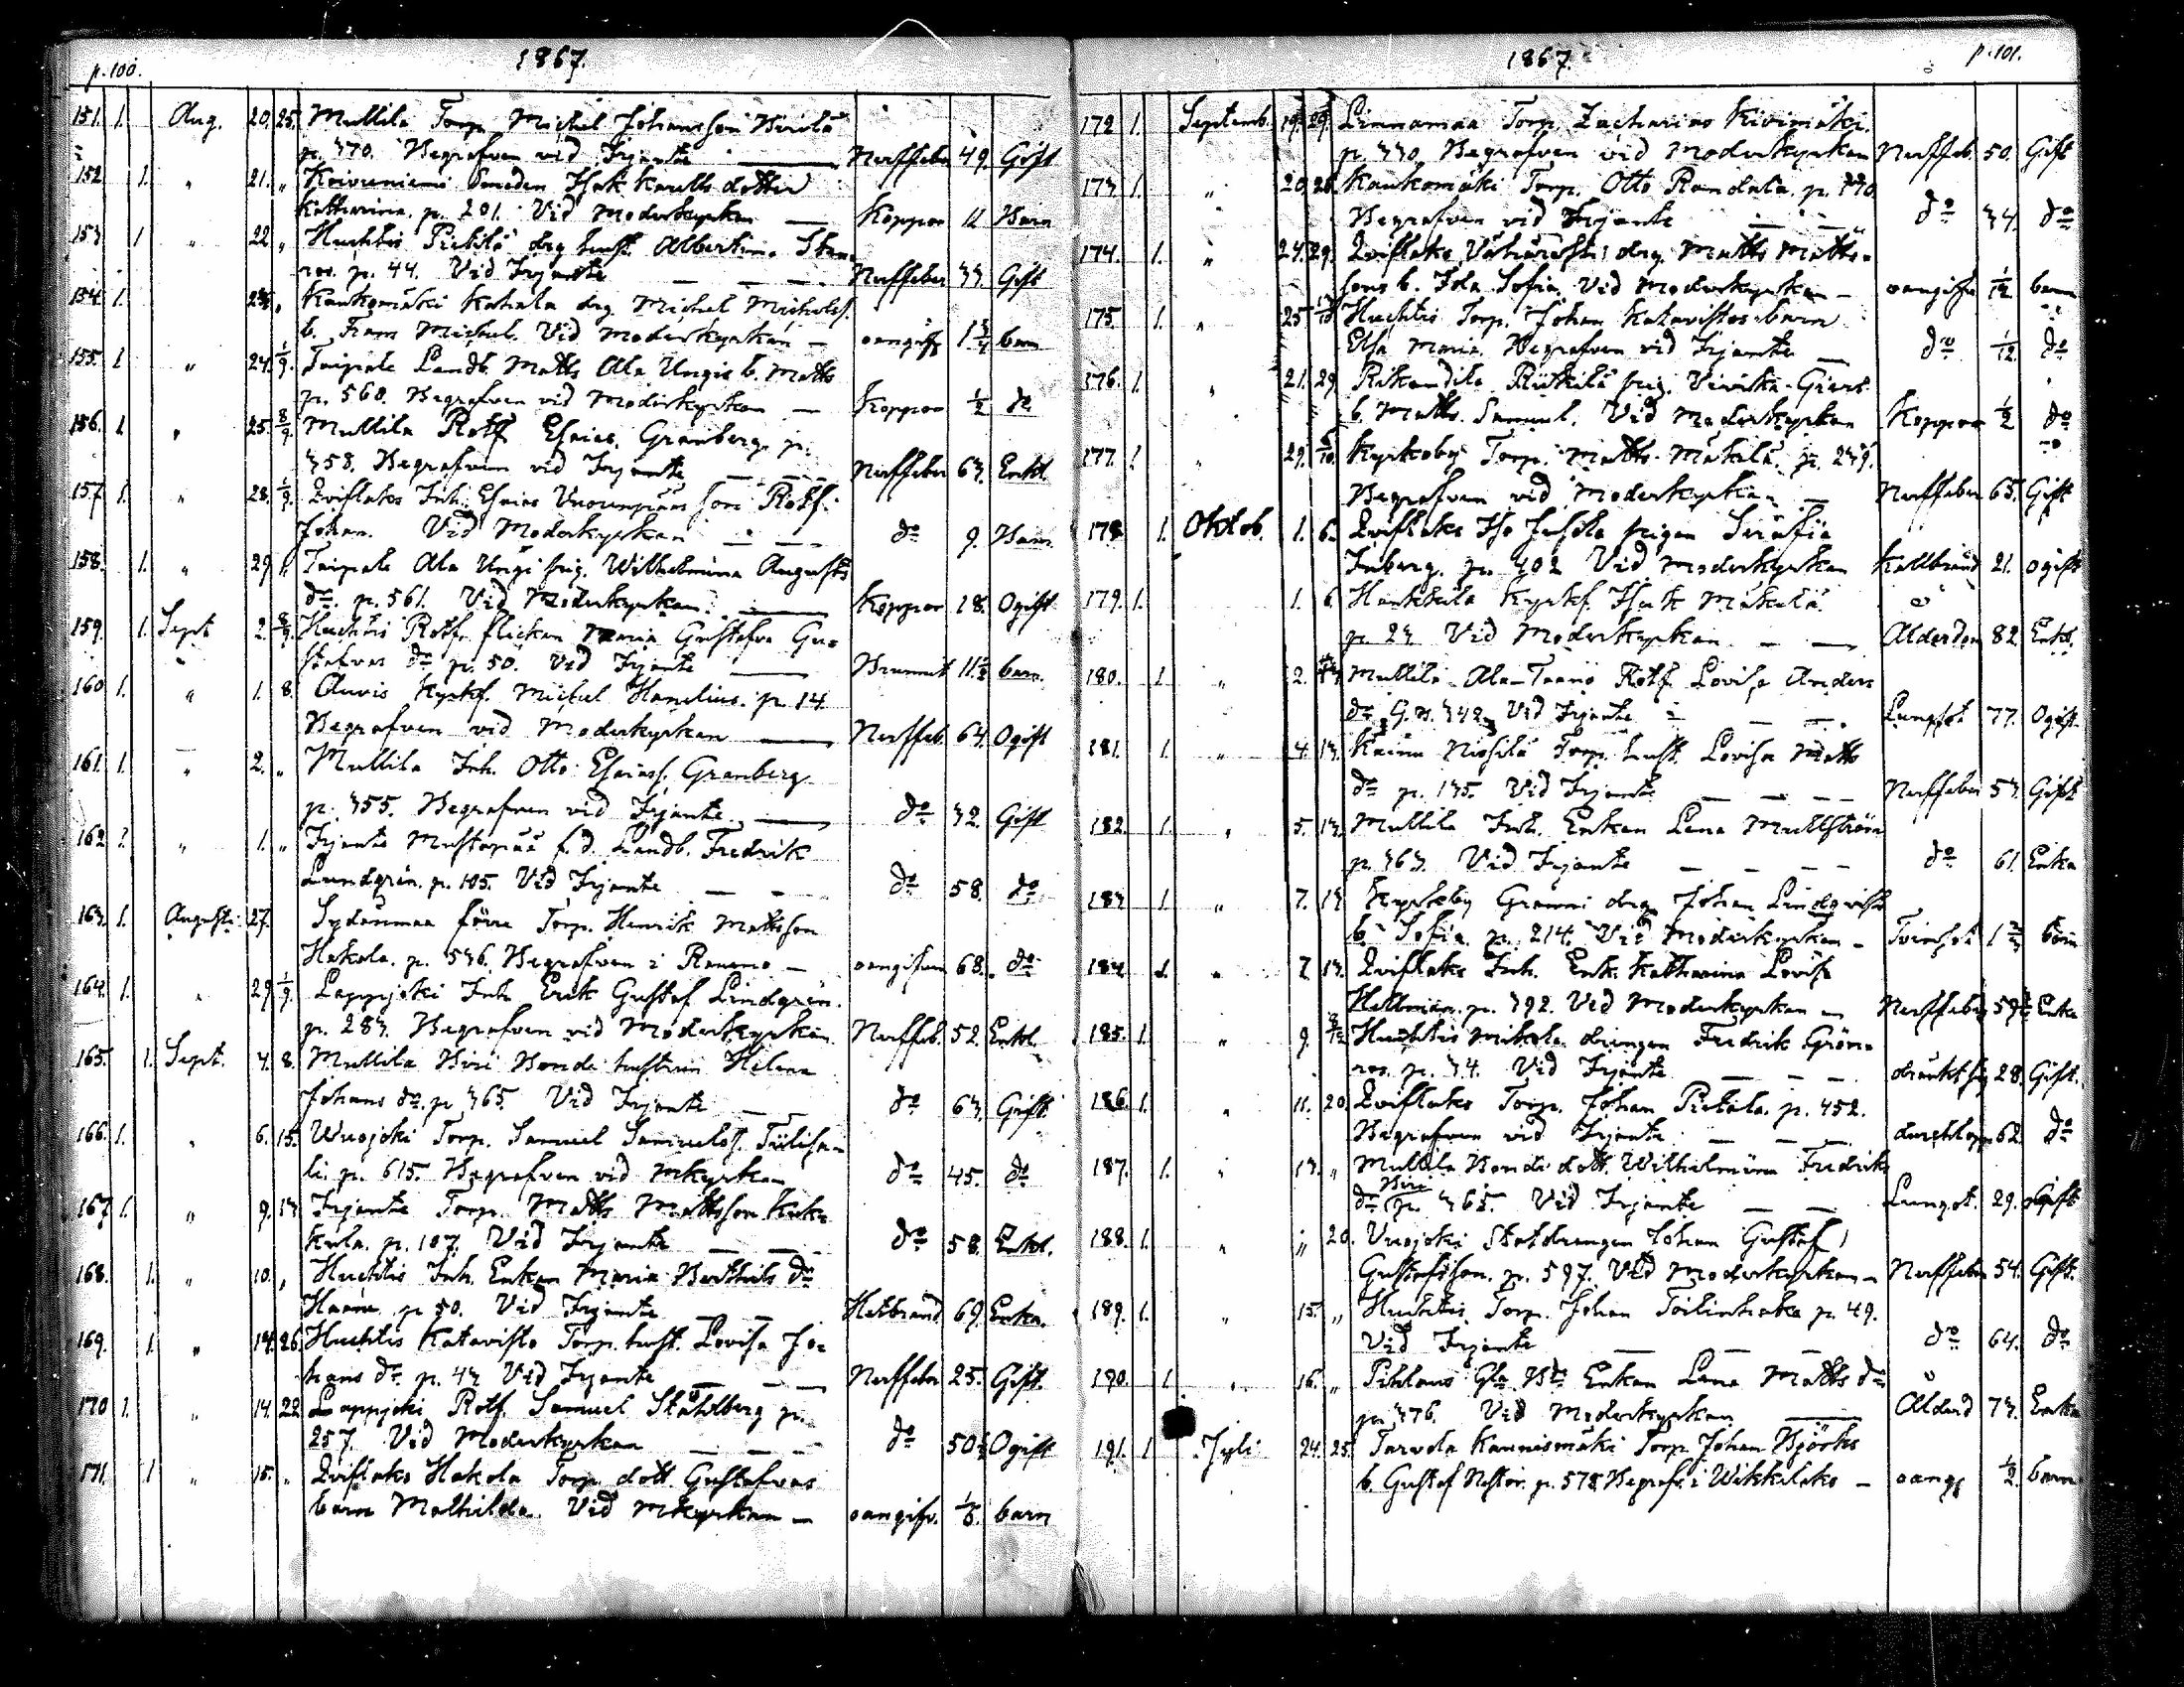 p. 100. 1867.
151. 1. Aug. 20. 25. Mullila Torp. Michel Johansson
p. 370. Begrafven vid Irjante — Nerffeber 49. Gift
152 1. " 21. " Koivuniemi Smeden Isak Karells dotter
Katharina. p. 201. Vid Moderkyrkan — Koppor 11 Barn
153 1 " 22 " Huchtis Pietilä drg hust. Albertina
p. 44. Vid Irjante — — — Nerffeber 33. Gift
154. 1. " Kaukomäki Kahala drg Michel Michelss.
b. Frans Michel. Vid Moderkyrkan — oangif. barn
155. 1 " 24. 1/9. Taipale Landb. Matts Ala Ungis b. Matts
p. 560. Begrafven vid Moderkyrkan — Koppor 1/2 do
156. 1. " 25. 8/9. Mullila Rotf. Esaias Granberg. p.
358. Begrafven vid Irjante — — Nerffeber 63. Enkl.
157 1. " 28. 1/9. Qviflaks Inh. Esaias son Rotf.
Johan. Vid Moderkyrkan — — do 9. Barn.
158. 1. " 29 1. Taipale Ala Ungi pig. Wilhelmina Augusts
dr. p. 561. Vid Moderkyrkan. — Koppor 18. Ogift
159. 1. Sept 2. 8/9. Huchtis Rotf. flickan Maria Gustafva Gu-
stafvas dr p. 50. Vid Irjante — 11 1/2 barn.
160 1. " 1. 8. Auvis Kyrkf. Michel Hamelius. p. 14.
Begrafven vid Moderkyrkan — Nerffeb. 64. Ogift
161. 1. " 2. " Mullila Inh. Otto Esaiass. Granberg.
p. 355. Begrafven vid Irjante. — do 32. Gift
162 " 1. " Irjante Mustapää f.d. Landb. Fredrik
Lundgrén. p. 105. Vid Irjante — — do 58. do
163. 1. Augusti. 27. Sydänmaa förre Torp. Henrik Mattsson
Hakola. p. 536. Begrafven i Raumo — oangifven 68. do
164. 1. " 29 1/9. Lappjoki Inh. Erik Gustaf Lindgrén.
p. 283. Begrafven vid Moderkyrkan. Nerffeb. 52. Enkl.
165. 1. Sept. 3. 8. Mullila Biri Bonde hustrun Helena
Johans dr. p. 365. Vid Irjante — — do 63. Gift.
166. 1. " 6. 15. Wuojoki Torp. Samuel Samuelss.
p. 615. Begrafven vid Mkyrkan do 45. do
167 1. " 9. 13 Irjante Torp. Matts Mattsson
p. 107. Vid Irjante — — do 58. Enkl.
168. 1. " 10. " Huchtis Inh. Enkan Maria Berthils dr
p. 50. Vid Irjante — — Hetbrand 69. Enka.
169. 1. " 14. 26. Huchtis Katavisto Torp. hust. Lovisa Jo-
hans dr. p. 43 Vid Irjante — — — Nerffeber 25. Gift.
170 1. " 14. 22 Lappjoki Rotf. Samuel Ståhlberg p.
257. Vid Moderkyrkan — — — do 50 Ogift
171. 1 " 15. " Qviflaks Hakola Torp. dott. Gustafvas
barn Mathilda. Vid Mkyrkan — oangifv. barn
1867. p. 101.
172 1. Septemb. 19. 29. Linnamaa Torp. Zacharias Kivimäki.
p. 330. Begrafven vid Moderkyrkan Nerffeb. 50. Gift
173 1. " 20. Kaukomäki Torp. Otto Randala. p.
Begrafven vid Irjante — — do 34. do
174. 1. " 24. 29. Qviflaks drg. Matts Matts-
sons b. Ida Sofia. Vid Moderkyrkan — oangifna 1/12 barn
175. 1. " 25 Huchtis Torp. Johan Katavistos barn
Elsa Maria. Begrafven vid Irjante — do 1/12. do
176. 1. " 21. 29. Riikandila Pietilä pig.
b. Matts Samuel. Vid Moderkyrkan Koppor 1/2 do
177. 1. " 29. 6/10. Kyrkoby Torp. Matts Mäkilä. p. 239.
Begrafven vid Moderkyrkan — Nerffeber 65. Gift
178 1. Oktob. 1. 6. Qviflaks pigan Serafia
Inberg. p. 402 Vid Moderkyrkan Kallbrand 21. ogift
179. 1. 1. 6. Hankkila Kyrkf. Isak Mäkelä
p. 23 Vid Moderkyrkan — — Ålderdom 82. Enkl.
180. 1. " 2. Mullila Ala-Taanö Rotf. Lovisa Anders
dr. p. 342. Vid Irjante — — Lungsot 77. Ogift.
181. 1. " 4. 13. Kainu Torp. hust. Lovisa Matts
dr p. 135. Vid Irjante — — — Nerffeber 53. Gift
182. 1. " 5. 13. Mullila Inh. Enkan Lena Mullström
p. 363. Vid Irjante — — — do 61. Enka
183 1. " 7. 13 Kyrkoby Gränni drg. Johan Lindqvists
b. Sofia. p. 214. Vid Moderkyrkan — Tvinsot barn
184. 1. " 7. 13. Qviflaks Inh. Enk. Katharina Lovisa
Hellman. p. 392. Vid Moderkyrkan — Nerffeber 59 Enka
185. 1. " 9. Huchtis Mikola drängen Fredrik Grön-
ros. p. 34. Vid Irjante — — — 28. Gift.
186. 1. " 11. 20. Qviflaks Torp. Johan Pietala. p. 452.
Begrafven vid Irjante — — — durchlopp 62. do
187. 1. " 13. " Mullila Bonde dott. Wilhelmina Fredriks
Biri
dr p. 365. Vid Irjante — — Lungot. 29. Ogift
188. 1. " " 20. Vuojoki Statdrängen Johan Gustaf
Gustafsson. p. 597. Vid Moderkyrkan — Nerffeber 54. Gift.
189. 1. " 15. " Huchtis Torp. Johan p. 49.
Vid Irjante — — — do 64. do
190. 1. " 16. " Pihlaus Gla Bde Enkan Lena Matts dr
p. 376. Vid Moderkyrkan — Ålderd 73. Enka
191. 1 Jyli 24. 25. Tarvola Kaunismäki Torp. Johan Björks
b. Gustaf Nestor. p. 578. Begrafv. i Wikkilaks — oang. 1/2. barn